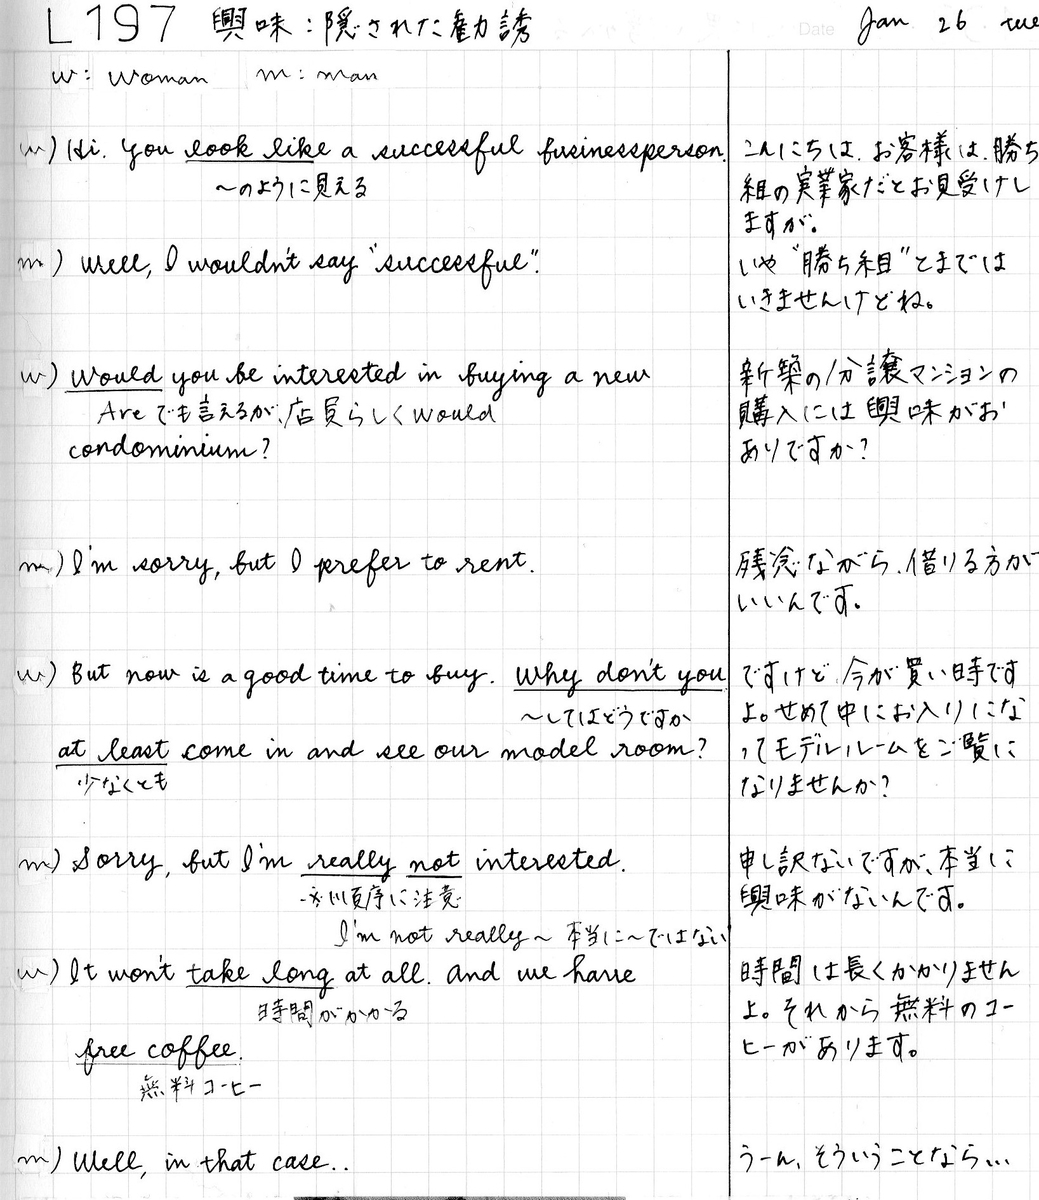 L197 興味：隠された勧誘 Date Jan 26 tue
w: woman m: man
w) Hi. You look like a successful businessperson.
〜のように見える
こんにちは．お客様は．勝ち
組の実業家だとお見受けし
ますが。
m) Well, I wouldn't say "successful".
いや"勝ち組"とまでは
いきませんけどね。
w) Would you be interested in buying a new
Are でも言えるが、店員らしく would
condominium?
新築の分譲マンションの
購入には興味がお
ありですか?
m) I'm sorry, but I prefer to rent.
残念ながら、借りる方が
いいんです。
w) But now is a good time to buy. Why don't you
〜してはどうですか
at least come in and see our model room?
少なくとも
ですけど、今が買い時です
よ。せめて中にお入りにな
ってモデルルームをご覧に
なりませんか?
m) Sorry, but I'm really not interested.
順序に注意
I'm not really〜 本当に〜ではない
申し訳ないですが、本当に
興味がないんです。
w) It won't take long at all. And we have
時間がかかる
free coffee.
無料コーヒー
時間は長くかかりません
よ。それから無料のコー
ヒーがあります。
m) Well, in that case..
うーん、そういうことなら...